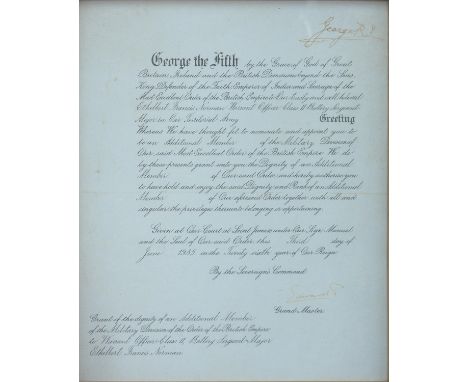 George R.I.
George the Fifth by the Grace of God of Great
Britain, Ireland and the British Dominions beyond the Seas,
King, Defender of the Faith, Emperor of India and Sovereign of the
Most Excellent Order of the British Empire to Our trusty and well beloved
Ethelbert Francis Norman Warrant Officer Class II Battery Sergeant
Major in Our Territorial Army
Greeting
Whereas We have thought fit to nominate and appoint you to
be an Additional Member of the Military Division of
Our said Most Excellent Order of the British Empire We do
by these presents grant unto you the Dignity of an Additional
Member of Our said Order and hereby authorise you
to have hold and enjoy the said Dignity and Rank of an Additional
Member of Our aforesaid Order together with all and
singular the privileges thereunto belonging or appertaining.
Given at Our Court at Saint James's under Our Sign Manual
and the Seal of Our said Order this Third day of
June 1935 in the Twenty sixth year of Our Reign
By the Sovereign's Command.
Grand Master.
Grant of the dignity of an Additional Member
of the Military Division of the Order of the British Empire
to Warrant Officer Class II, Battery Sergeant-Major
Ethelbert Francis Norman.